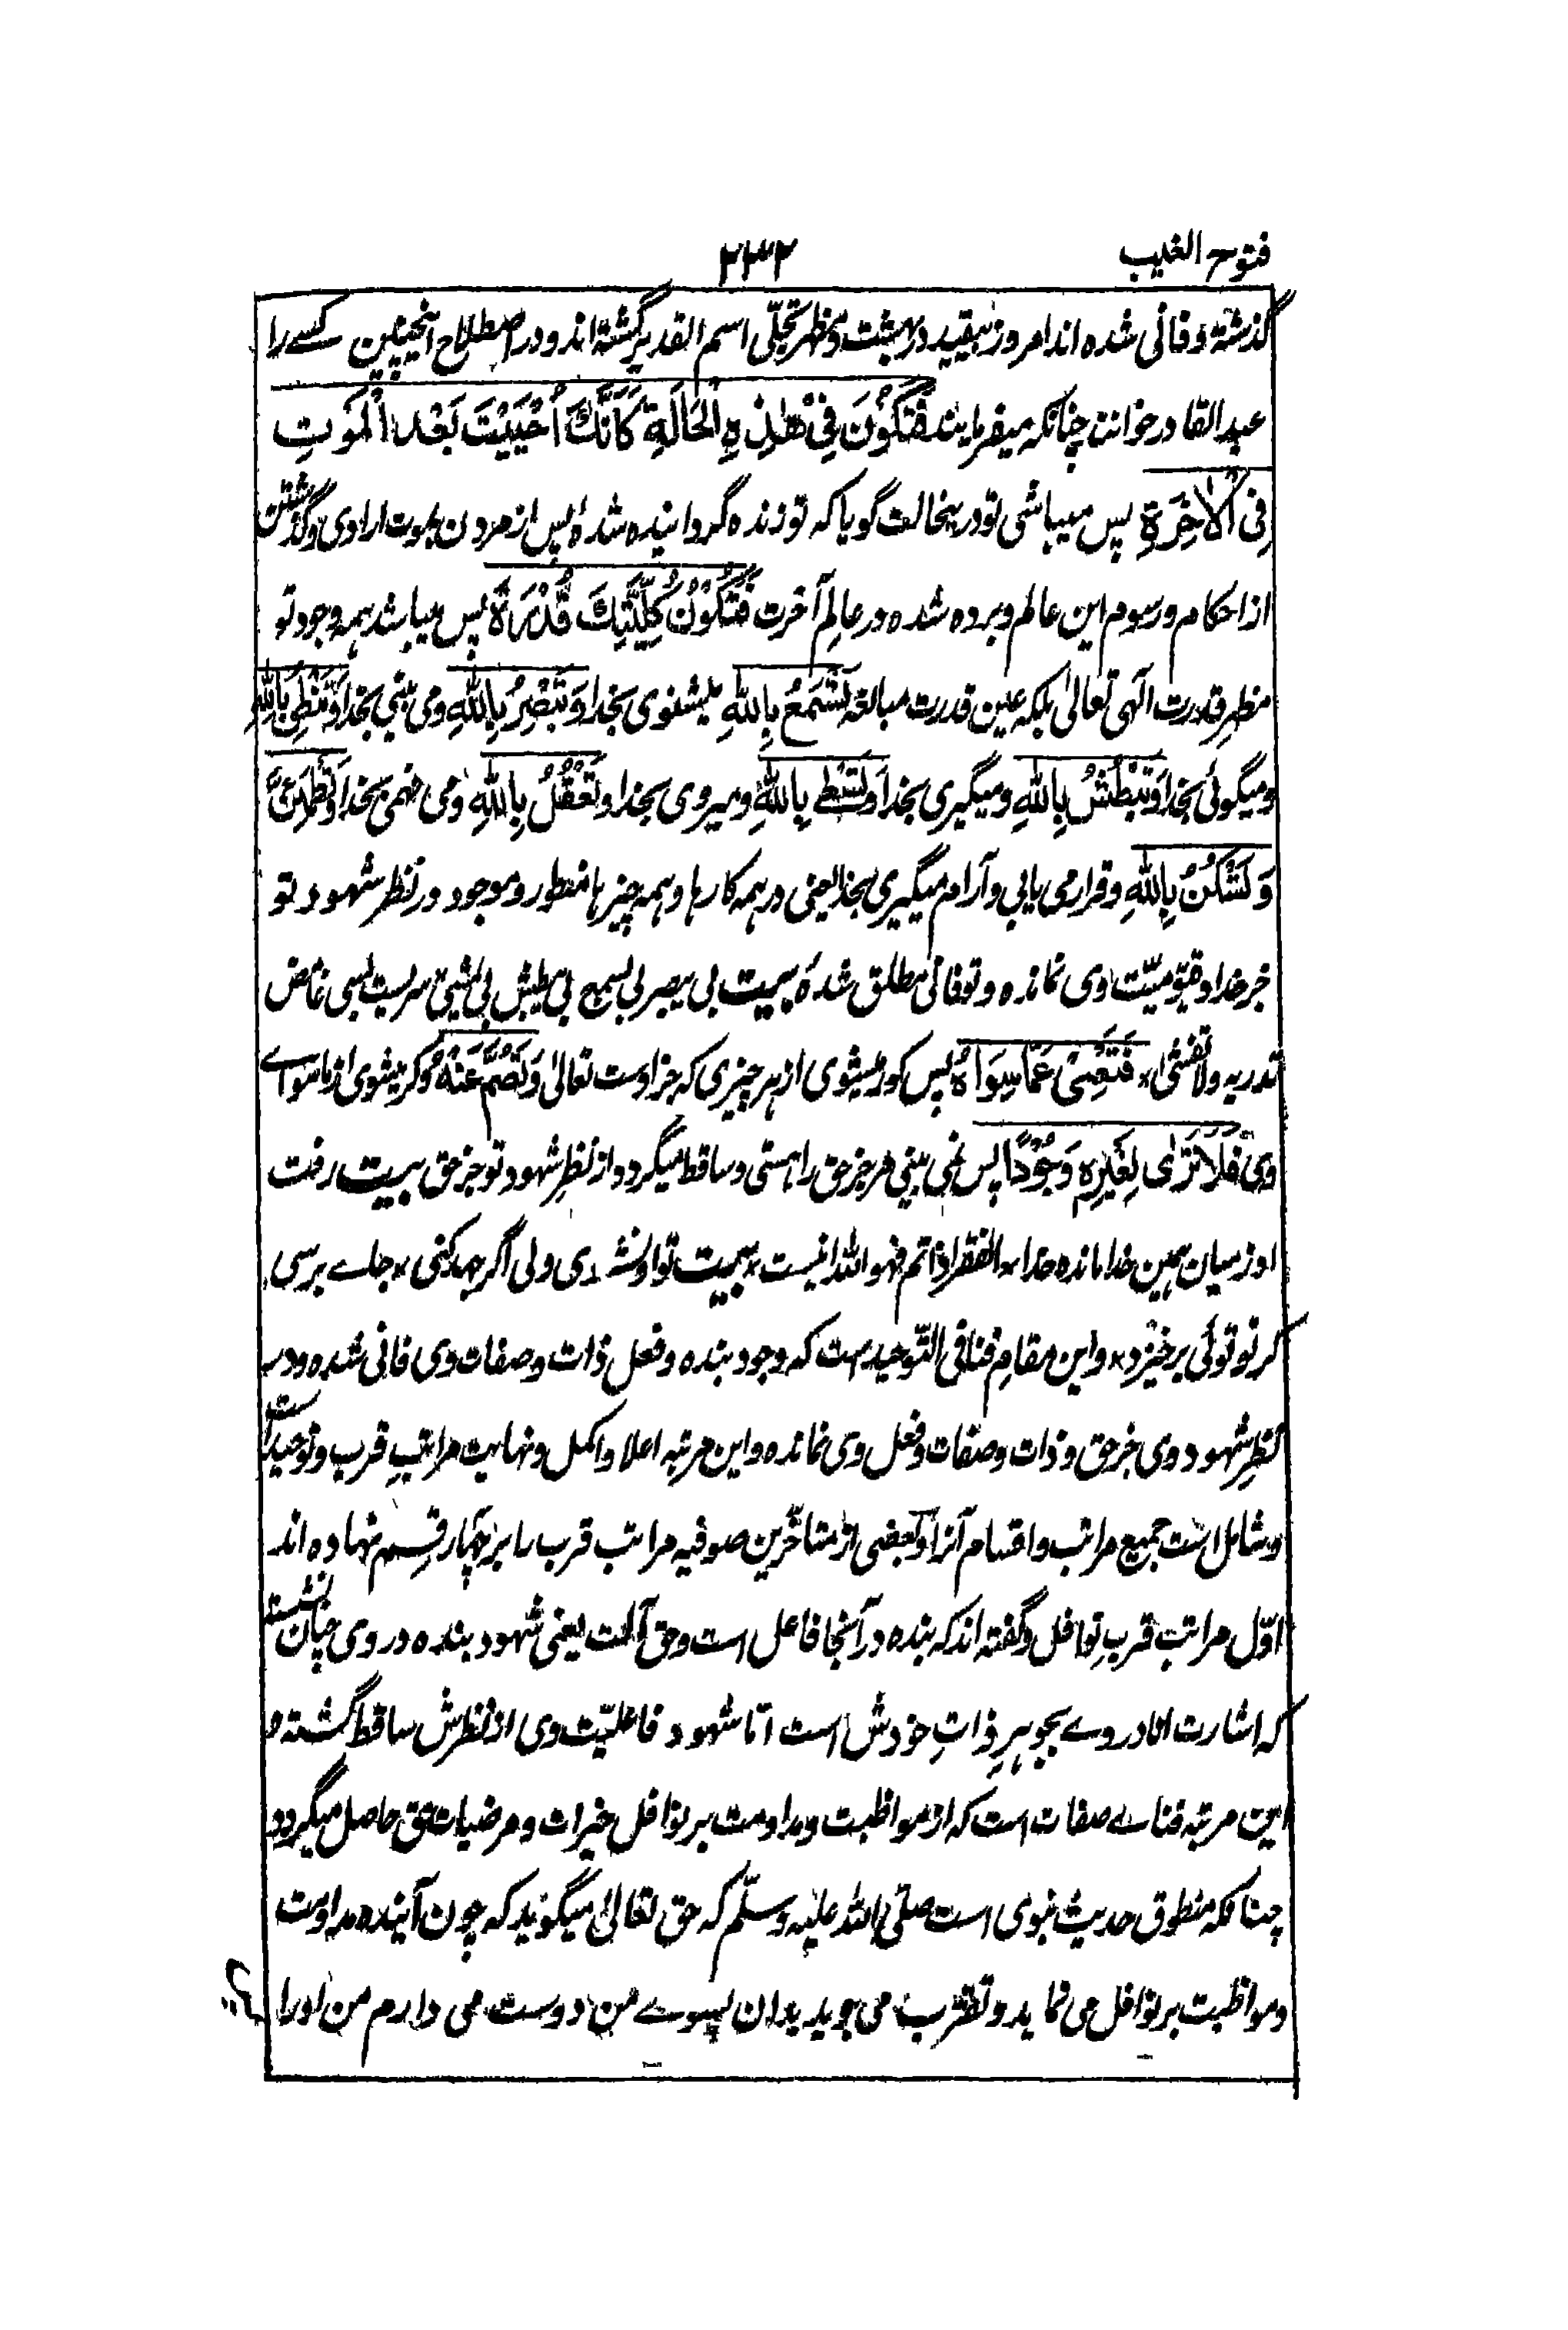 فتوح الغیب ۲۳۲
گذشته و فانی شده اند امروز بیقید در بهشت و مظهر تجلّی اسم القدیر گشته اند و در اصطلاح اینچنین کسے را
عبد القادر خوانند چنانکه میفرمایند فَتَكُوْنَ فِیْ هٰذِهِ الْحَالَةِ كَاَنَّكَ اُحْيِيْتَ بَعْدَ الْمَوْتِ
فِی الْاٰخِرَةِ پس میباشی تو درینحالت گویا که تو زنده گردانیده شدۀ پس از مردن بموت ارادی و گذشتن
از احکام و رسوم این عالم و برده شده در عالمِ آخرت فَتَكُوْنُ كُلِّيَّتُكَ قُدْرَةً پس میباشد همه وجود تو
مظهرِ قدرت الٓهی تعالیٰ بلکه عین قدرت مبالغه تَسْمَعُ بِاللّٰهِ میشنوی بخدا وَتُبْصِرُ بِاللّٰهِ و می بینی بخدا وَتَنْطِقُ بِاللّٰهِ
و میگوئی بخدا وَتَبْطُشُ بِاللّٰهِ و میگیری بخدا وَتَسْعٰے بِاللّٰهِ و میروی بخدا وَتَعْقُلُ بِاللّٰهِ و می فهمی بخدا وَتَطْمَئِنُّ
وَتَسْكُنُ بِاللّٰهِ و قرار می یابی و آرام میگیری بخدا یعنی در همه کارها و همه چیزها منظور و موجود در نظرِ شهود تو
جز خدا و قیّومیّت وی نمانده و تو فانی مطلق شدۀ بیت بی یبصر بی یسمع بی یبطش بی یمشی سریست بسی غامض
تدریه ولا تفشیٰ * فَتَعْمٰی عَمَّا سِوَاهُ پس کور میشوی از هر چیزی که جز اوست تعالیٰ وَتَصُمُّ عَنْهُ و کر میشوی از ماسواے
وی فَلَا تَرٰی لِغَيْرِهٖ وُجُوْدًا پس نمی بینی مر جز حق را هستی و ساقط میگردد از نظرِ شهود تو جز حق بیت رفت
او ز میان همین خدا مانده خدا * الفقر اذا تم فهو الله اینست * بیت تو او نشوی ولی اگر جهد کنی * جاے برسی
کز تو توئی برخیزد * و این مقامِ فنا فی التّوحید ست که وجود بنده و فعل ذات و صفات وی فانی شده و در
نظرِ شهود وی جز حق و ذات و صفات و فعل وی نمانده و این مرتبه اعلا و اکمل و نهایت مراتبِ قرب و توحید است
و شامل است جمیع مراتب و اقسام آنرا و بعضی از متأخّرین صوفیه مراتب قرب را بر چهار قسم نهاده اند
اوّل مراتب قربِ نوافل و گفته اند که بنده در آنجا فاعل است و حق آلت یعنی شهود بنده در وی چنان نشسته
که اشارت انا در وے بجوهرِ ذاتِ خودش است امّا شهود فاعلیّت وی از نظرش ساقط گشته و
این مرتبه فناے صفات است که از مواظبت و مداومت بر نوافل خیرات و مرضیات حق حاصل میگردد
چنانکه منطوق حدیث نبوی است صلّی الله علیه وسلّم که حق تعالیٰ میگوید که چون آینده مداومت
و مواظبت بر نوافل می نماید و تقرّب می جوید بدان بسوے من دوست می دارم من او را